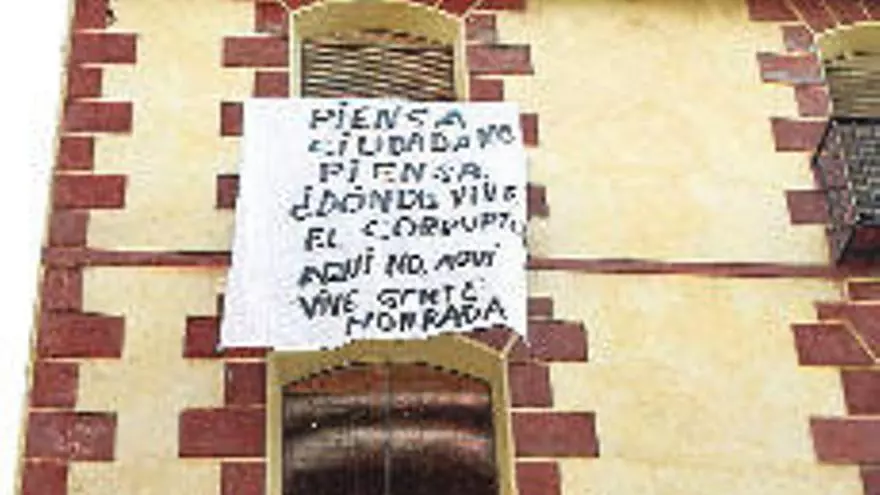 PIENSA
CIUDADANO
PIENSA.
¿DÓNDE VIVE
EL CORRUPTO
AQUÍ NO, AQUÍ
VIVE GENTE
HONRADA